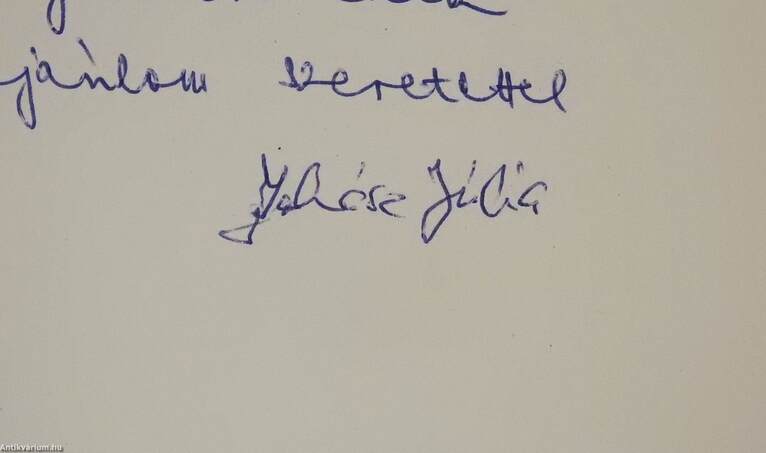 jánlom szeretettel
Juhász Júlia
Antikvarium.hu